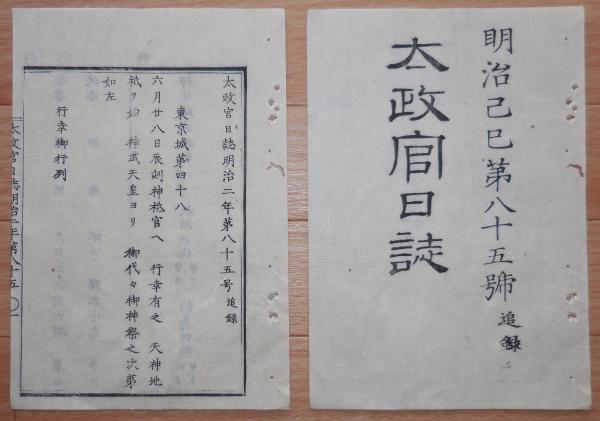 明治己巳第八十五號 追錄
太政官日誌
太政官日誌明治二年第八十五号 追錄
東京城第四十八
六月廿八日辰刻神祇官ヘ 行幸有之 天神地
祇ヲ始 神武天皇ヨリ 御代々御神祭之次第
如左
行幸御行列
太政官日誌明治二年第八十五 一